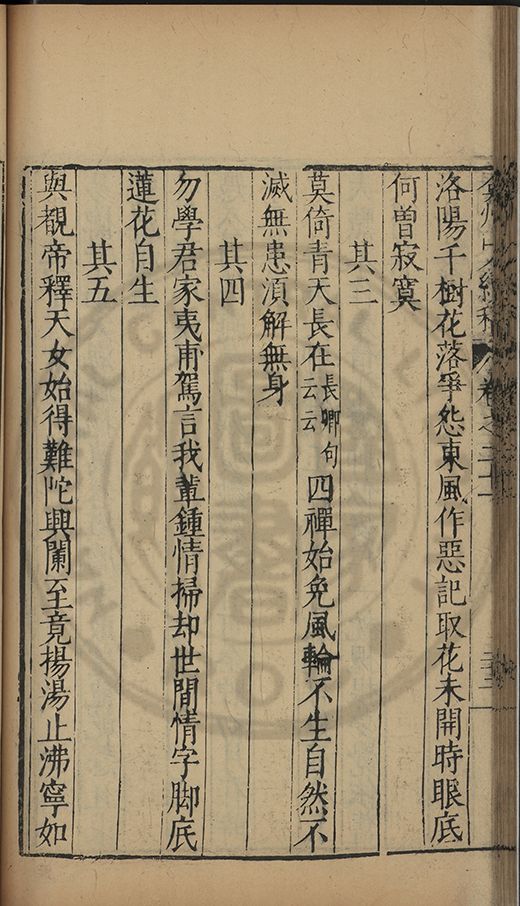 弇州山人續稿 卷之二十
洛陽千樹花落爭怨東風作惡記取花未開時眼底
何曾寂寞
其三
莫倚青天長在長卿句云云四禪始免風輪不生自然不
滅無患須解無身
其四
勿學君家夷甫駕言我輩鍾情掃却世間情字脚底
蓮花自生
其五
與觀帝釋天女始得難陀興闌至竟揚湯止沸寧如